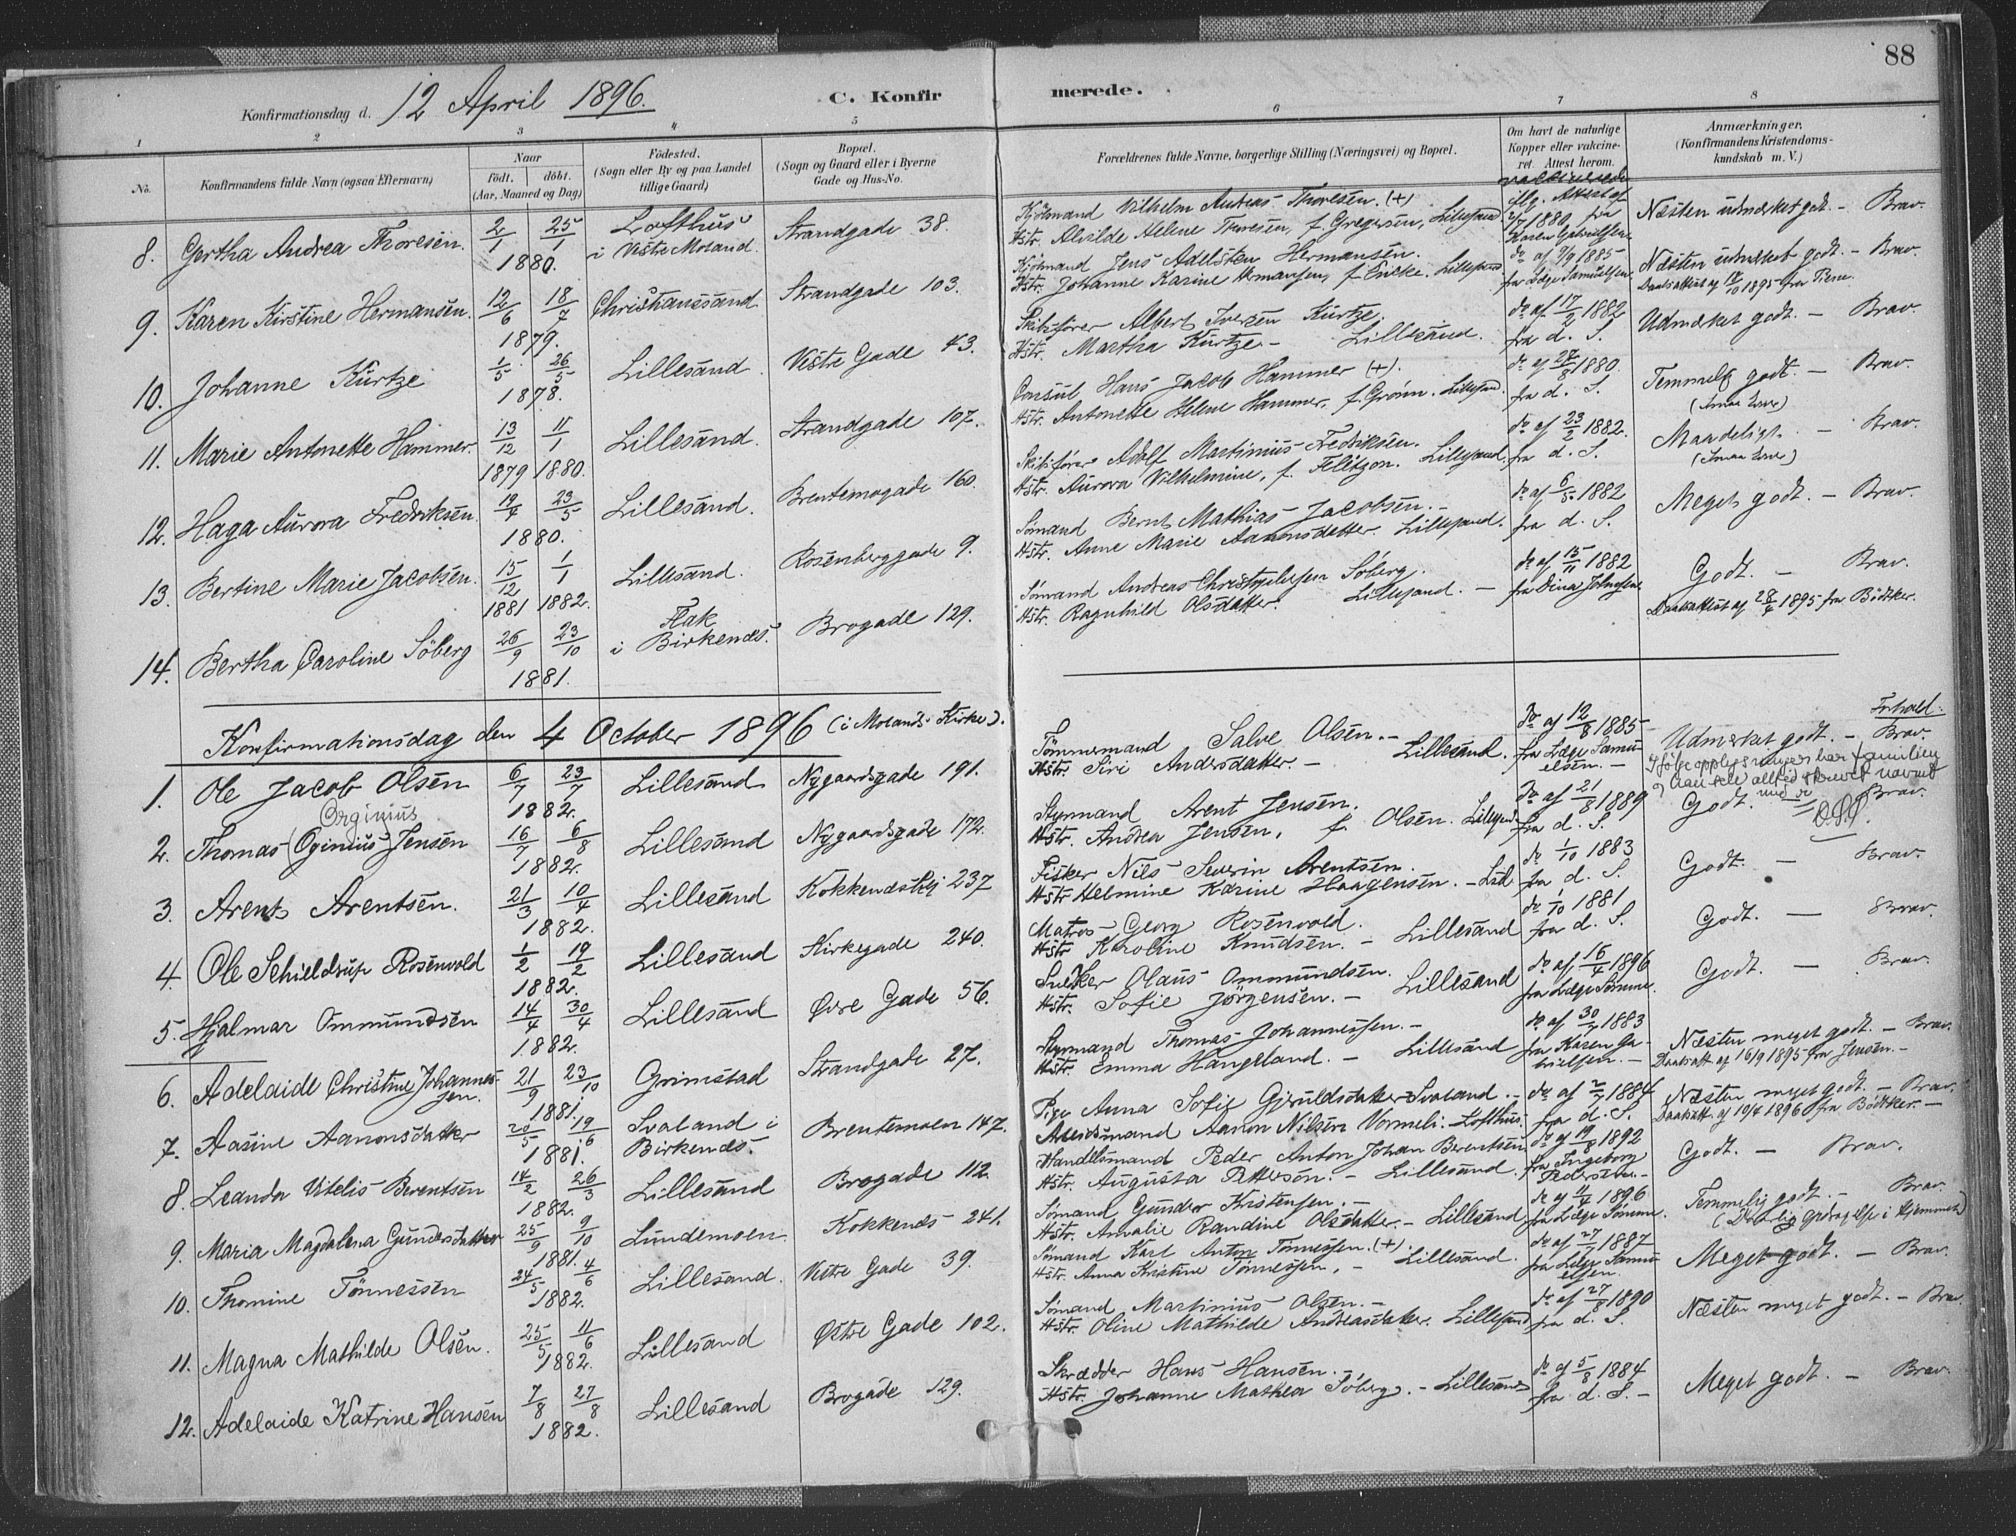 88
Konfirmationsdag d. 12 April 1896. C. Konfirmerede.
1 2 3 4 5 6 7 8
No. Konfirmandens fulde Navn (ogsaa Efternavn) Naar födt. döbt. (Aar, Maaned og Dag) Födested. (Sogn eller By og paa Landet tillige Gaard) Bopæl. (Sogn og Gaard eller i Byerne Gade og Hus-No. Forældrenes fulde Navne, borgerlige Stilling (Næringsvei) og Bopæl. Om havt de naturlige Kopper eller vaccineret. Attest herom. Anmærkninger. (Konfirmandens Kristendomskundskab m. V.)
8. Gertha Andrea Thoresen. 2/1 25/1 1880. Lofthus i Vestre Moland. Strandgade 38. Kjöbmand Vilhelm Andreas Thoresen. (+) Hstr. Alvilde Helene Thoresen, f. Gregersen, Lillesand. flg. Attest af 2/7 1880 fra Karen Gabrielsen. Næsten udmærket godt. - Brav.
9. Karen Kirstine Hermansen. 12/6 18/7 1879. Christianssand. Strandgade 103. Kjöbmand Jens Adelsten Hermansen. Hstr. Johanne Karine Hermansen, Lillesand do af 9/9 1885 fra Læge Samuelsen. Næsten udmærket godt. - Brav. Daabsattest af 1895 fra
10. Johanne Kurtze 1/5 26/5 1878. Lillesand. Vestre Gade 43. Skibsförer Albert Iversen Kurtze. Hstr. Martha Kurtze - Lillesand. do af 17/2 1882 fra d. S. Udmærket godt. - Brav.
11. Marie Antonette Hammer. 13/12 1879 11/1 1880. Lillesand. Strandgade 107. Consul Hans Jacob Hammer (+). Hstr. Antonette Helene Hammer, f. Grönn. Lillesand. do af 24/8 1880. fra d. S. Temmelig godt. - Brav.
12. Haga Aurora Fredriksen. 19/4 23/5 1880. Lillesand. Brentemogade 160. Skibsförer Adolf Martinius Fredriksen. Hstr. Aurora Vilhelmine, f. Lillesand. do af 23/2 1882. fra d. S. Maadeligt. - Brav.
13. Bertine Marie Jacobsen. 15/12 1881 1/1 1882. Lillesand. Rosenberggade 9. Sömand Bernt Mathias Jacobsen. - Hstr. Anne Marie Aanonsdatter. Lillesand. do af 6/5 1882 fra d. S. Meget godt. - Brav.
14. Bertha Caroline Söberg 26/9 23/10 1881. Flak i Birkenes. Brogade 129. Sömand Andreas Christophersen Söberg. Hstr. Ragnhild Olsdatter. Lillesand. - do af 15/11 1882 fra Dina Johnsen. Godt. - Brav. Daabsattest af 28/4 1895 fra Bödtker.
Konfirmationsdag den 4 October 1896 (i Molands Kirke). Forhold.
1. Ole Jacob Olsen 6/7 23/7 1882. Lillesand Nygaardsgade 191. Tömmermand Salve Olsen. - Hstr. Siri Andersdatter. - Lillesand. do af 12/8 1885 fra Læge Samuelsen. - Udmærket godt. - Brav.
Ifölge opplysninger har familien alltid skrevet navnet med r
2. Thomas (Oginius Jensen Orginius 16/7 6/8 1882. Lillesand Nygaardsgade 172. Styrmand Arent Jensen. Hstr. Andrea Jensen, f. Olsen. Lillesand do af 21/8 1889 fra d. S. Godt. Brav.
3. Arent Arentsen. 21/3 10/4 1882. Lillesand Kokkenes 237 Fisker Nils Severin Arentsen. Hstr Helmine Karine Haagensen. - Lsd. do 1/10 1883 fra d. S. Godt. - Brav.
4. Ole Schieldrup Rosenvold 1/2 19/2 1882. Lillesand Kirkegade 240. Matros Georg Rosenvold. Hstr Karoline Knudsen. - Lillesand do 1/10 1881 fra d. S. Godt. - Brav.
5. Hjalmar Ommundsen 14/4 30/4 1882. Lillesand Övre Gade 56. Snedker Olaus Ommundsen. Hstr. Sofie Jörgensen. - Lillesand do af 16/4 1896 fra Læge Sömme. Godt. - Brav.
6. Adelaide Christine Johannessen. 21/9 23/10 1881. Grimstad Strandgade 27. Styrmand Thomas Johannessen. - Hstr. Emma Hangeland. - Lillesand do af 30/7 1883 fra Karen Gabrielsen. - Næsten meget godt. - Brav. Daabsatt. af 16/9 1895 fra Jensen. -
7. Aasine Aanonsdatter 20/5 19/6 1881. Svaland i Birkenes. Brentemoen 147. Pige Anna Sofie Gjeruldsdatter Svaland. - Arbeidsmand Aanon Nilsen Vormeli. Lofthus. do af 2/7 1884 fra d. S. Næsten meget godt. - Brav. Daabsatt. af 10/4 1896 fra Bödtker. -
8. Leanda Vitelis Berentsen 14/2 26/3 1882. Lillesand Brogade 112. Handelsmand Peder Anton Johan Berentsen Hstr. Augusta Pettersen. - Lillesand. do af 19/8 1892 fra Ingeborg Pedersen. - Godt. - Brav.
9. Maria Magdalena Gundersdatter 25/9 9/10 1881. Lundemoen. Kokkenes 241. Sömand Gunder Kristensen. - Hstr. Amalie Randine Olsdatter. - Lillesand do af 11/4 1896 fra Læge Sömme. Temmelig godt. - Brav. (Daarlig Opdragelse i Hjemmet)
10. Thomine Tönnessen 24/5 4/6 1882. Lillesand. Vestre Gade 39. Sömand Karl Anton Tönnessen. (+). Hstr. Anna Kristine Tönnessen, - Lillesand. do af 27/7 1887 fra Læge Samuelsen. Meget godt. - Brav.
11. Magna Mathilde Olsen. 25/5 11/6 1882. Lillesand Östre Gade 102. Sömand Martinius Olsen. - Hstr. Oline Mathilde Andreasdatter. Lillesand do af 27/8 1890 fra d. S. Næsten meget godt. - Brav.
12. Adelaide Katrine Hansen 7/8 27/8 1882. Lillesand Brogade 129. Skrædder Hans Hansen. Hstr. Johanne Mathea Söberg. - Lillesand do af 5/8 1884 fra d. S. - Meget godt. - Brav.